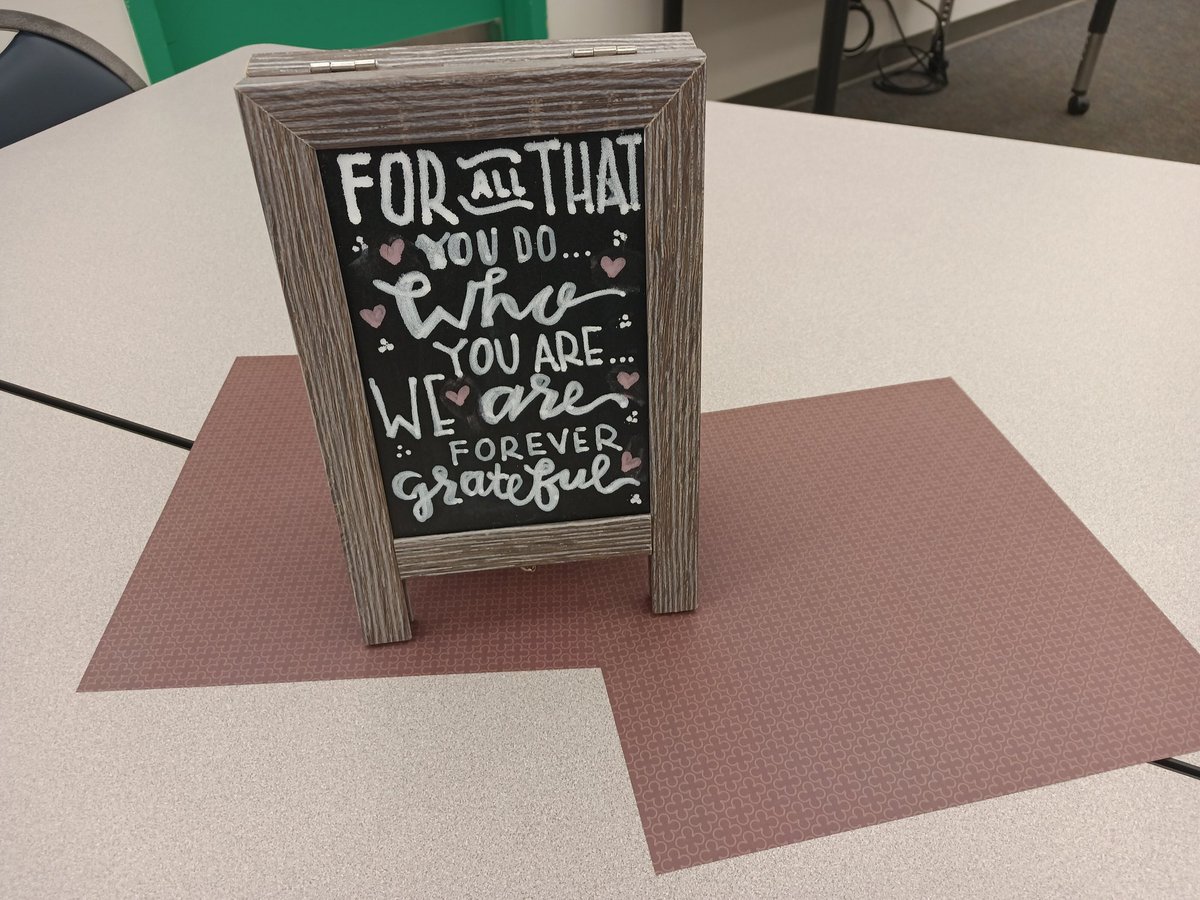 FOR ALL THAT
YOU DO...
Who
YOU ARE...
WE are
FOREVER
grateful